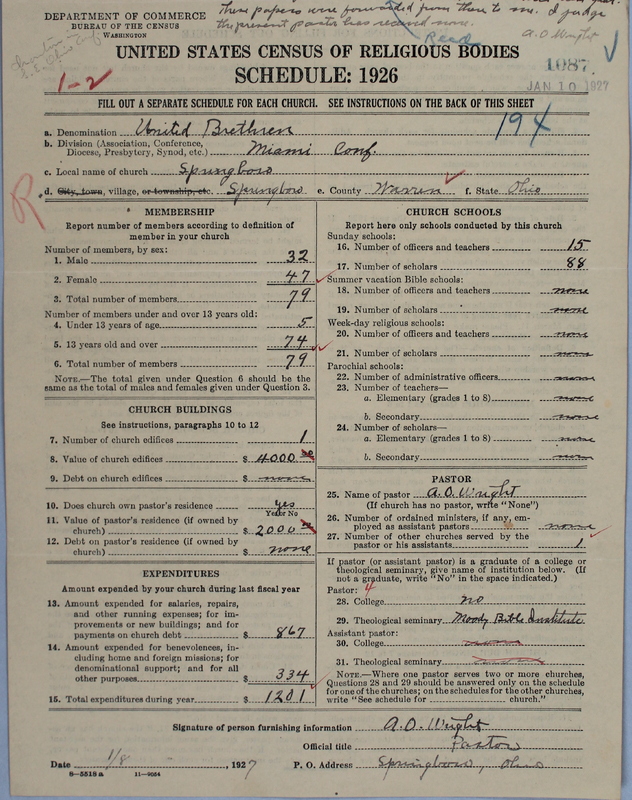 DEPARTMENT OF COMMERCE
BUREAU OF THE CENSUS
WASHINGTON
These papers were forwarded from there to me. I judge
the present pastor has record now.
A. O. Wright
Read
1087
JAN 10 1927
1-2
UNITED STATES CENSUS OF RELIGIOUS BODIES
SCHEDULE: 1926
FILL OUT A SEPARATE SCHEDULE FOR EACH CHURCH. SEE INSTRUCTIONS ON THE BACK OF THIS SHEET
194
a. Denomination United Brethren
b. Division (Association, Conference, Diocese, Presbytery, Synod, etc.) Miami Conf.
c. Local name of church Springboro
R
d. City, town, village, or township, etc. Springboro e. County Warren f. State Ohio
MEMBERSHIP
Report number of members according to definition of
member in your church
Number of members, by sex:
1. Male 32
2. Female 47
3. Total number of members 79
Number of members under and over 13 years old:
4. Under 13 years of age 5
5. 13 years old and over 74
6. Total number of members 79
NOTE.—The total given under Question 6 should be the
same as the total of males and females given under Question 3.
CHURCH BUILDINGS
See instructions, paragraphs 10 to 12
7. Number of church edifices 1
8. Value of church edifices $ 4000 00
9. Debt on church edifices $ none
10. Does church own pastor's residence yes
Yes or No
11. Value of pastor's residence (if owned by
church) $ 2000 00
12. Debt on pastor's residence (if owned by
church) $ none
EXPENDITURES
Amount expended by your church during last fiscal year
13. Amount expended for salaries, repairs,
and other running expenses; for im-
provements or new buildings; and for
payments on church debt $ 867
14. Amount expended for benevolences, in-
cluding home and foreign missions; for
denominational support; and for all
other purposes $ 334
15. Total expenditures during year $ 1201
CHURCH SCHOOLS
Report here only schools conducted by this church
Sunday schools:
16. Number of officers and teachers 15
17. Number of scholars 88
Summer vacation Bible schools:
18. Number of officers and teachers none
19. Number of scholars none
Week-day religious schools:
20. Number of officers and teachers none
21. Number of scholars none
Parochial schools:
22. Number of administrative officers none
23. Number of teachers—
a. Elementary (grades 1 to 8) none
b. Secondary none
24. Number of scholars—
a. Elementary (grades 1 to 8) none
b. Secondary none
PASTOR
25. Name of pastor A. O. Wright
(If church has no pastor, write "None")
26. Number of ordained ministers, if any, em-
ployed as assistant pastors none
27. Number of other churches served by the
pastor or his assistants 1
If pastor (or assistant pastor) is a graduate of a college or
theological seminary, give name of institution below. (If
not a graduate, write "No" in the space indicated.)
Pastor: 4
28. College no
29. Theological seminary Moody Bible Institute
Assistant pastor:
30. College none
31. Theological seminary
NOTE.—Where one pastor serves two or more churches,
Questions 28 and 29 should be answered only on the schedule
for one of the churches; on the schedules for the other churches,
write "See schedule for church."
Signature of person furnishing information A. O. Wright
Official title Pastor
Date 1/8, 1927 P. O. Address Springboro, Ohio
8-5518 a 11-9054